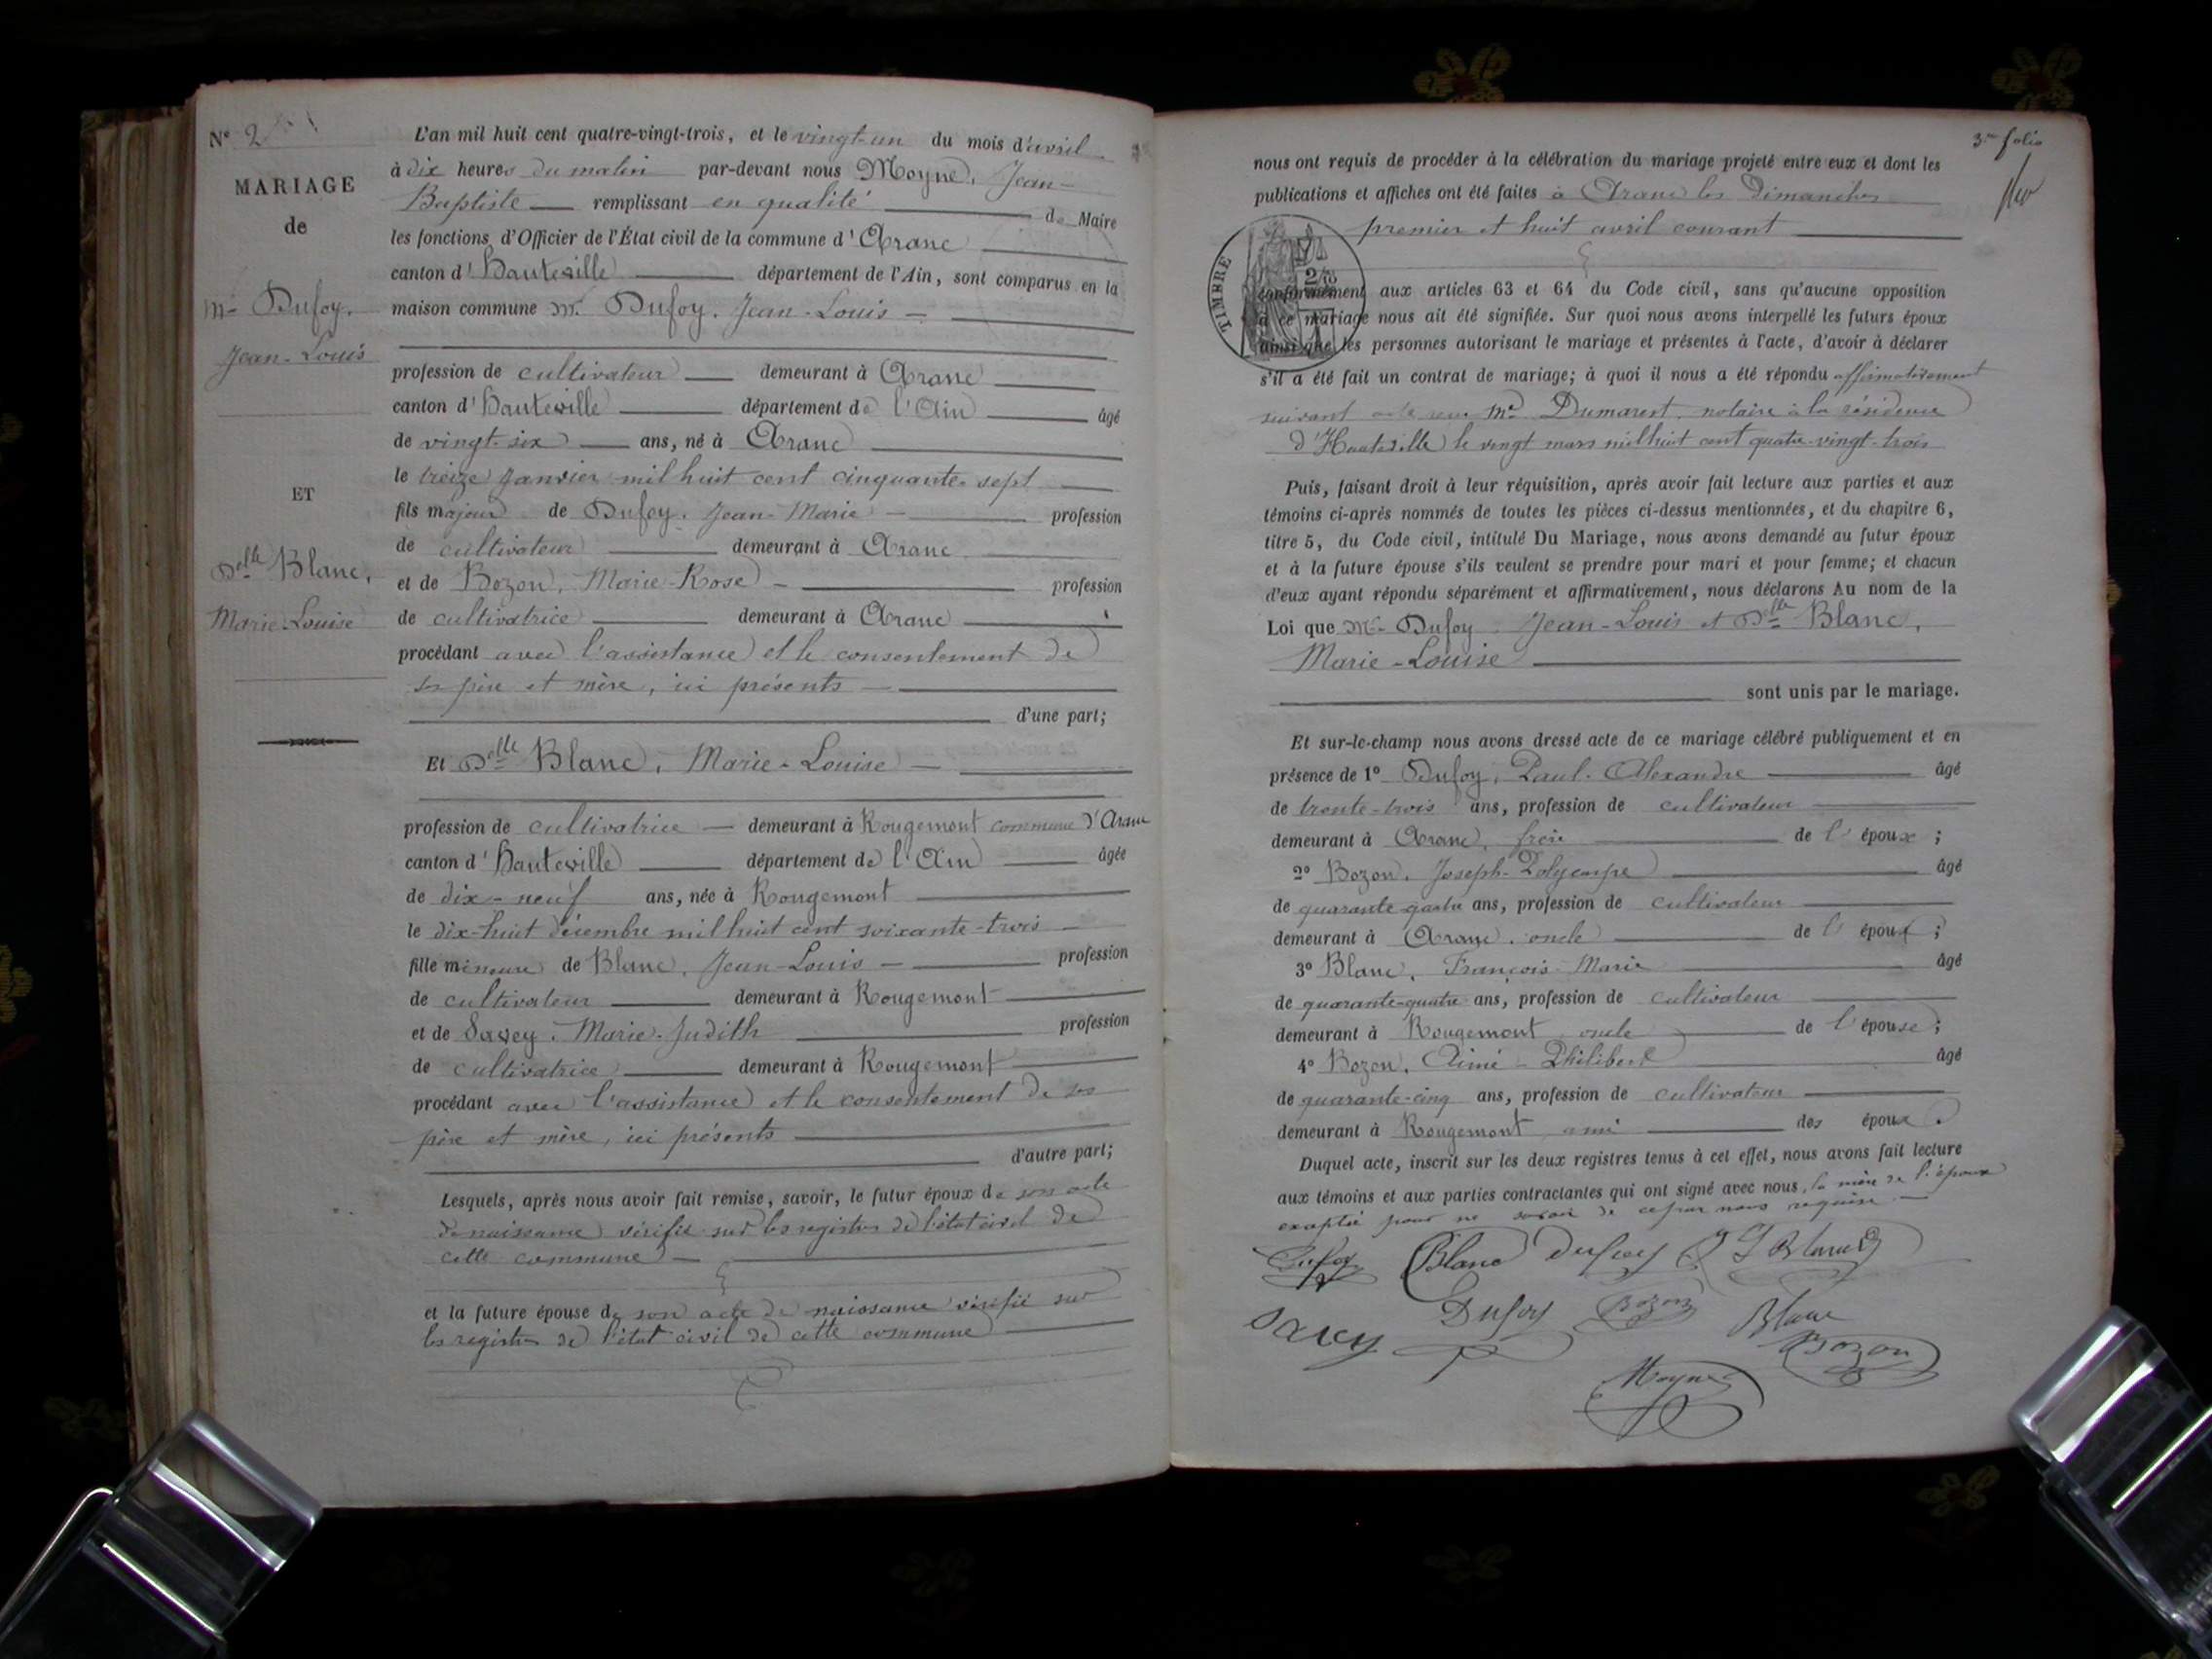 N° 2
MARIAGE
de
Mr Dufoy,
Jean-Louis
ET
Delle Blanc,
Marie-Louise
L'an mil huit cent quatre-vingt-trois, et le vingt-un du mois d'avril
à dix heures du matin par-devant nous Moyne, Jean-
Baptiste remplissant en qualité de Maire
les fonctions d'Officier de l'État civil de la commune d'Aranc
canton d'Hauteville département de l'Ain, sont comparus en la
maison commune Mr Dufoy, Jean-Louis
profession de cultivateur demeurant à Aranc
canton d'Hauteville département de l'Ain âgé
de vingt-six ans, né à Aranc
le treize Janvier mil huit cent cinquante-sept
fils majeur de Dufoy, Jean-Marie profession
de cultivateur demeurant à Aranc
et de Bozon, Marie-Rose profession
de cultivatrice demeurant à Aranc
procédant avec l'assistance et le consentement de
ses père et mère, ici présents
d'une part;
Et Delle Blanc, Marie-Louise
profession de cultivatrice demeurant à Rougemont commune d'Aranc
canton d'Hauteville département de l'Ain âgée
de dix-neuf ans, née à Rougemont
le dix-huit décembre mil huit cent soixante-trois
fille mineure de Blanc, Jean-Louis profession
de cultivateur demeurant à Rougemont
et de Savey, Marie-Judith profession
de cultivatrice demeurant à Rougemont
procédant avec l'assistance et le consentement de ses
père et mère, ici présents
d'autre part;
Lesquels, après nous avoir fait remise, savoir, le futur époux de son acte
de naissance vérifié sur les registres de l'état civil de
cette commune
et la future épouse de son acte de naissance vérifié sur
les registres de l'état civil de cette commune
3me folio
nous ont requis de procéder à la célébration du mariage projeté entre eux et dont les
publications et affiches ont été faites à Aranc les Dimanches
premier et huit avril courant
TIMBRE
conformément aux articles 63 et 64 du Code civil, sans qu'aucune opposition
à ce mariage nous ait été signifiée. Sur quoi nous avons interpellé les futurs époux
ainsi que les personnes autorisant le mariage et présentes à l'acte, d'avoir à déclarer
s'il a été fait un contrat de mariage; à quoi il nous a été répondu affirmativement
suivant acte reçu Me Dumarest, notaire à la résidence
d'Hauteville le vingt mars mil huit cent quatre-vingt-trois
Puis, faisant droit à leur réquisition, après avoir fait lecture aux parties et aux
témoins ci-après nommés de toutes les pièces ci-dessus mentionnées, et du chapitre 6,
titre 5, du Code civil, intitulé Du Mariage, nous avons demandé au futur époux
et à la future épouse s'ils veulent se prendre pour mari et pour femme; et chacun
d'eux ayant répondu séparément et affirmativement, nous déclarons Au nom de la
Loi que Mr Dufoy Jean-Louis et Delle Blanc,
Marie-Louise
sont unis par le mariage.
Et sur-le-champ nous avons dressé acte de ce mariage célébré publiquement et en
présence de 1° Dufoy, Paul-Alexandre âgé
de trente-trois ans, profession de cultivateur
demeurant à Aranc, frère de l'époux ;
2° Bozon, Joseph-Polycarpe âgé
de quarante-quatre ans, profession de cultivateur
demeurant à Aranc, oncle de l'époux ;
3° Blanc, François-Marie âgé
de quarante-quatre ans, profession de cultivateur
demeurant à Rougemont oncle de l'épouse ;
4° Bozon, Aimé-Philibert âgé
de quarante-cinq ans, profession de cultivateur
demeurant à Rougemont ami des époux.
Duquel acte, inscrit sur les deux registres tenus à cet effet, nous avons fait lecture
aux témoins et aux parties contractantes qui ont signé avec nous, la mère de l'époux
exceptée pour ne savoir de ce par nous requise
Dufoy Blanc Dufoy J L Blanc
Savey Dufoy Bozon Blanc
Bozon
Moyne